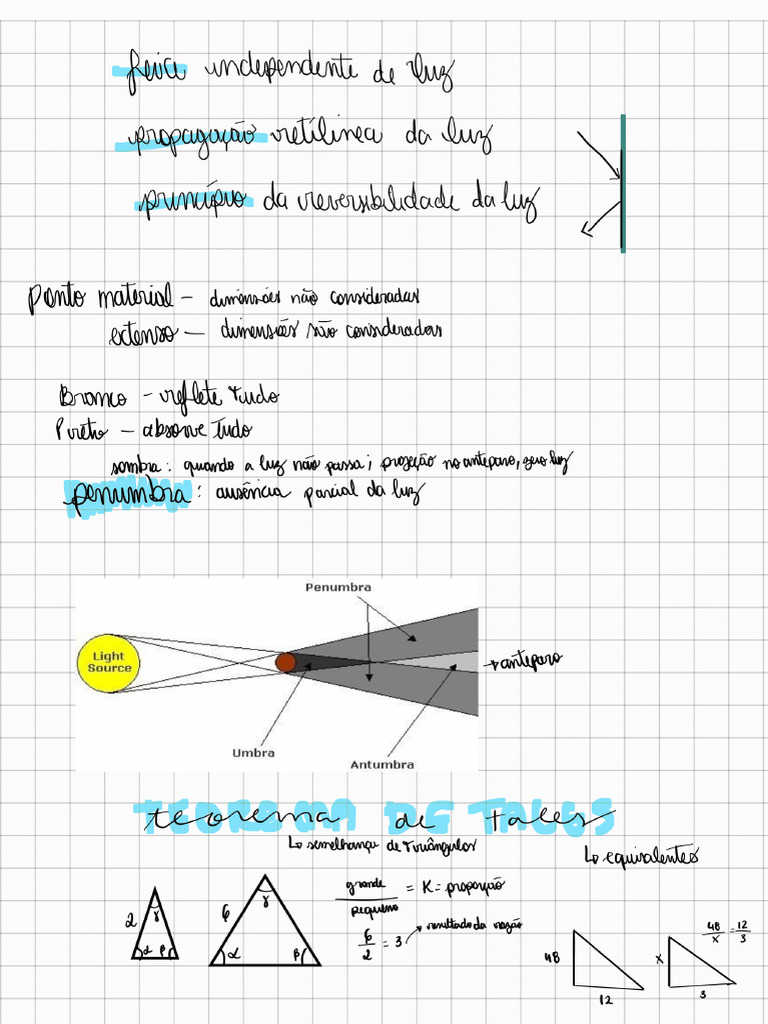 feixe independente de luz
propagação retílinea da luz
princípio da reversibilidade da luz
Ponto material - dimensões não consideradas
extenso - dimensões são consideradas
Branco - reflete tudo
Preto - absorve tudo
sombra: quando a luz não passa; projeção no anteparo, zero luz
penumbra: ausência parcial da luz
Penumbra
Light
Source
→ anteparo
Umbra
Antumbra
teorema de tales
↳ semelhança de triângulos
↳ equivalentes
grande
pequeno
= K = proporção
6/2 = 3 → resultado da razão
2 γ α β
6 γ α β
48
12
x
3
48/x = 12/3